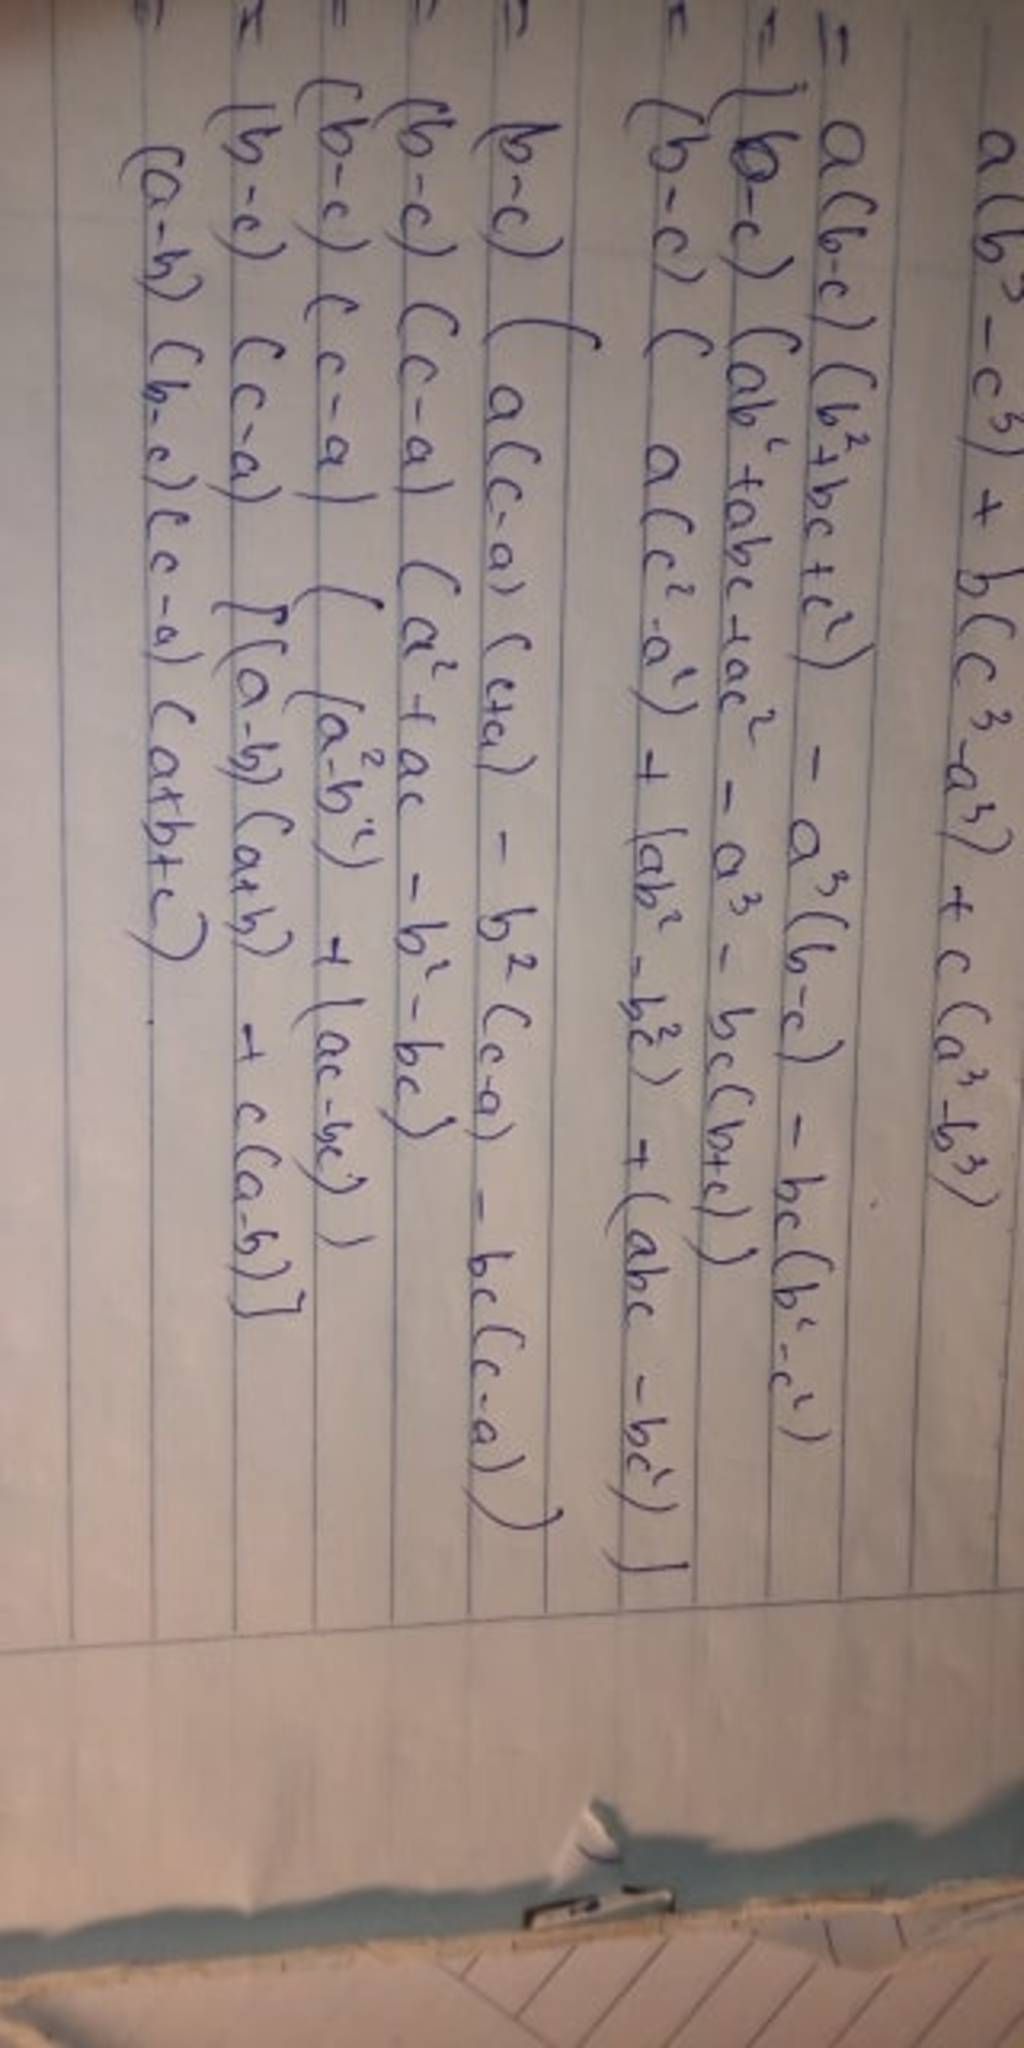 a(b³-c³) + b(c³-a³) + c(a³-b³)
= a(b-c)(b²+bc+c²) - a³(b-c) - bc(b²-c²)
= (b-c)(ab²+abc+ac² - a³ - bc(b+c))
= (b-c)( a(c²-a²) + (ab²-b²c) + (abc-bc²)]
= (b-c)( a(c-a)(c+a) - b²(c-a) - bc(c-a))
= (b-c)(c-a)(a²+ac-b²-bc)
= (b-c)(c-a)( (a²-b²) + (ac-bc))
= (b-c)(c-a)[(a-b)(a+b) + c(a-b)]
= (a-b)(b-c)(c-a)(a+b+c).